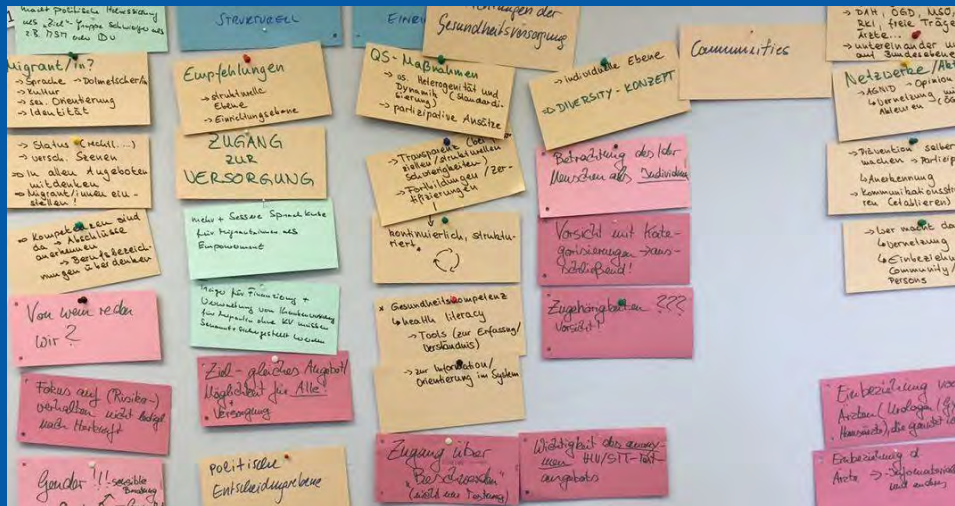 macht politische
als "Ziel"gruppe schwieriger als
z.B. MSM oder IDU
Migrant/in?
→ Sprache → Dolmetscher/in
→ Kultur
→ sex. Orientierung
→ Identität
→ Status (rechtl....)
→ versch. Szenen
→ In allen Angeboten
mitdenken
→ Migrant/innen ein-
stellen!
→ Kompetenzen sind
da → Abschlüsse
anerkennen
→ Berufsbezeich-
nungen überdenken
Von wem reden
wir?
Fokus auf (Risiko-)
verhalten nicht lediglich
nach Herkunft
Gender !!! sensible
STRUKTURELL
Empfehlungen
→ strukturelle
Ebene
→ Einrichtungsebene
ZUGANG
ZUR
VERSORGUNG
mehr + bessere Sprachkurse
für Migrantinnen als
Empowerment
Träger für Finanzierung +
für Menschen ohne KV müssen
werden
Ziel - gleiches Angebot/
Möglichkeit für Alle
+
Versorgung
politische
Entscheidungsebene
EINRI
ichtungen der
Gesundheitsversorgung
QS-Maßnahmen
→ Heterogenität und
Dynamik (Standardi-
sierung)
→ partizipative Ansätze
→ Transparent (bei
ziellen/strukturellen
Schwierigkeiten)
→ Fortbildungen/Zer-
tifizierungen
kontinuierlich, struktu-
riert
* Gesundheitskompetenz
↳ health literacy
→ Tools (zur Erfassung/
Verständnis)
→ zur Information/
Orientierung im System
Zugang über
"Beschwerden"
(nicht nur Testung)
→ individuelle Ebene
→ DIVERSITY-KONZEPT
Betrachtung des/der
Menschen als Individuum
Vorsicht mit Kate-
gorisierungen → aus-
schließend!
Zugehörigkeiten ???
Vorsicht!
Wichtigkeit des anony-
men HIV/STI-Test-
angebots
Communities
→ DAH, ÖGD, MSO,
RKI, freie Träge
Ärzte...
→ untereinander u
auf Bundesebene
Netzwerke/Akt
→ AGNID → Opinion
↳ Vernetzung mi
Akteuren (ÖG
→ Prävention selber
machen → Partizip
↳ Anerkennung
→ Kommunikationsstru
ren (etablieren)
→ Wer macht da
↳ Vernetzung
↳ Einbeziehun
Community/
Persons
Einbeziehung vo
Ärzten (Urologen/Gy
Hausärzte), die
Einbeziehung d
Ärzte →